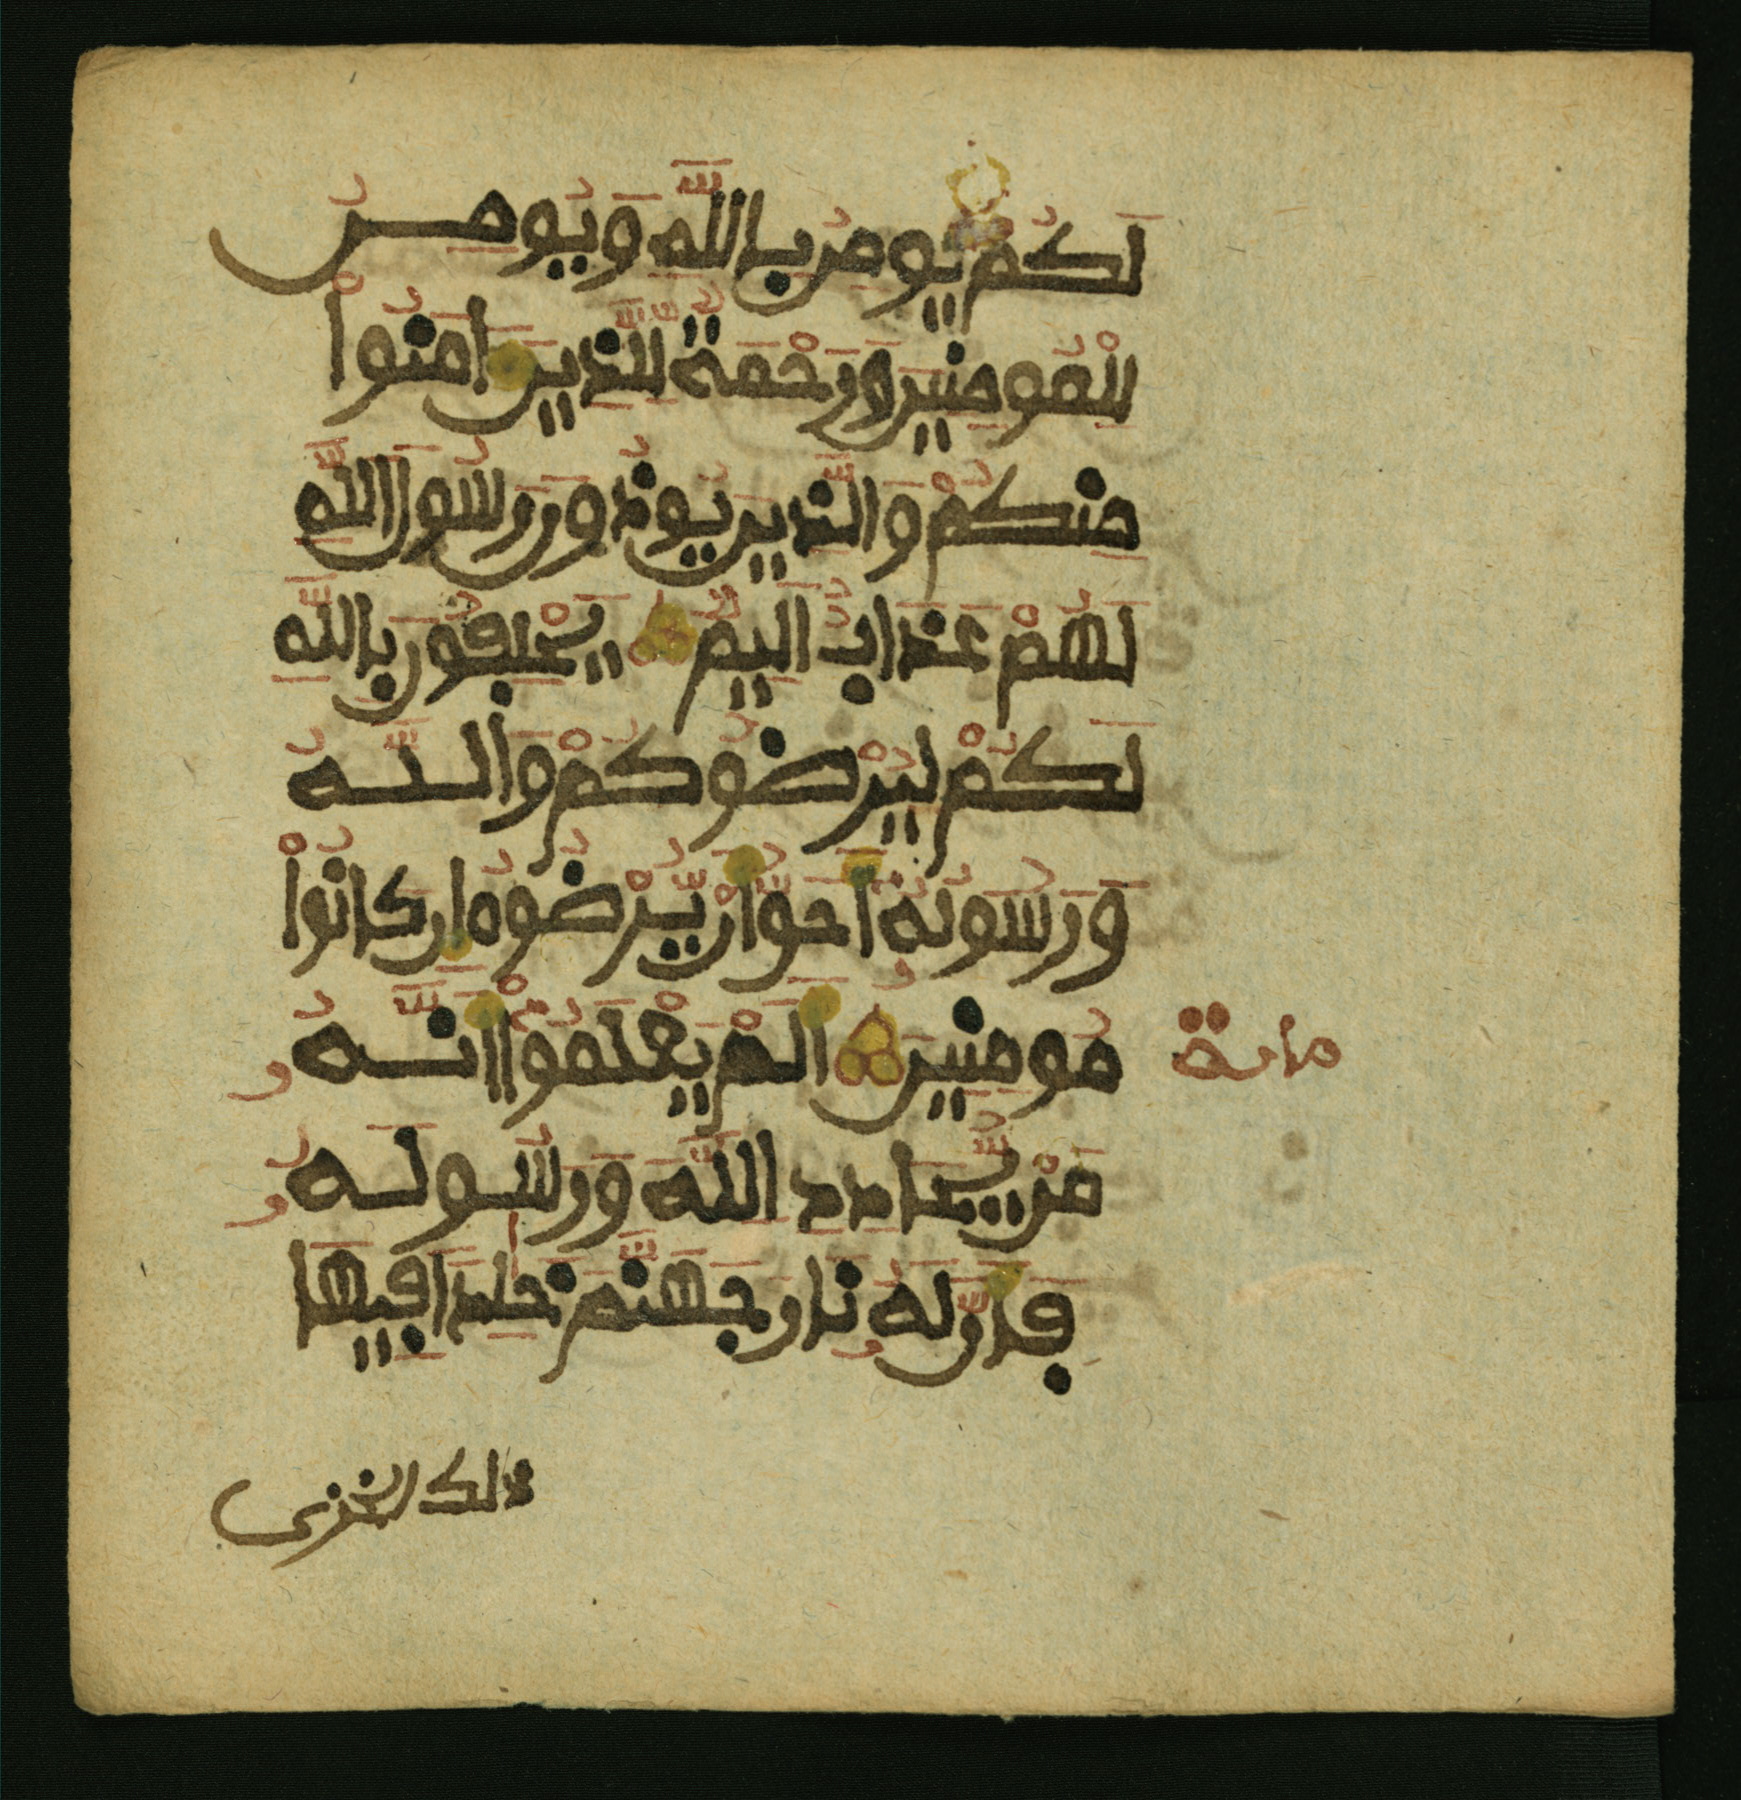 لَكُمْ يُومِنُ بِاللَّهِ وَيُومِنُ
لِلْمُومِنِينَ وَرَحْمَةٌ لِّلَّذِينَ ءَامَنُواْ
مِنكُمْ وَالَّذِينَ يُوذُونَ رَسُولَ اللَّهِ
لَهُمْ عَذَابٌ اَلِيمٌ يَحْلِفُونَ بِاللَّهِ
لَكُمْ لِيُرْضُوكُمْ وَاللَّهُ
وَرَسُولُهُ أَحَقُّ أَنْ يُّرْضُوهُ إِن كَانُواْ
مُومِنِينَ أَلَمْ يَعْلَمُواْ أَنَّهُ
مائة
مَنْ يُّحَادِدِ اللَّهَ وَرَسُولَهُ
فَأَنَّ لَهُ نَارَ جَهَنَّمَ خَٰلِدًا فِيهَا
ذلك الخزى